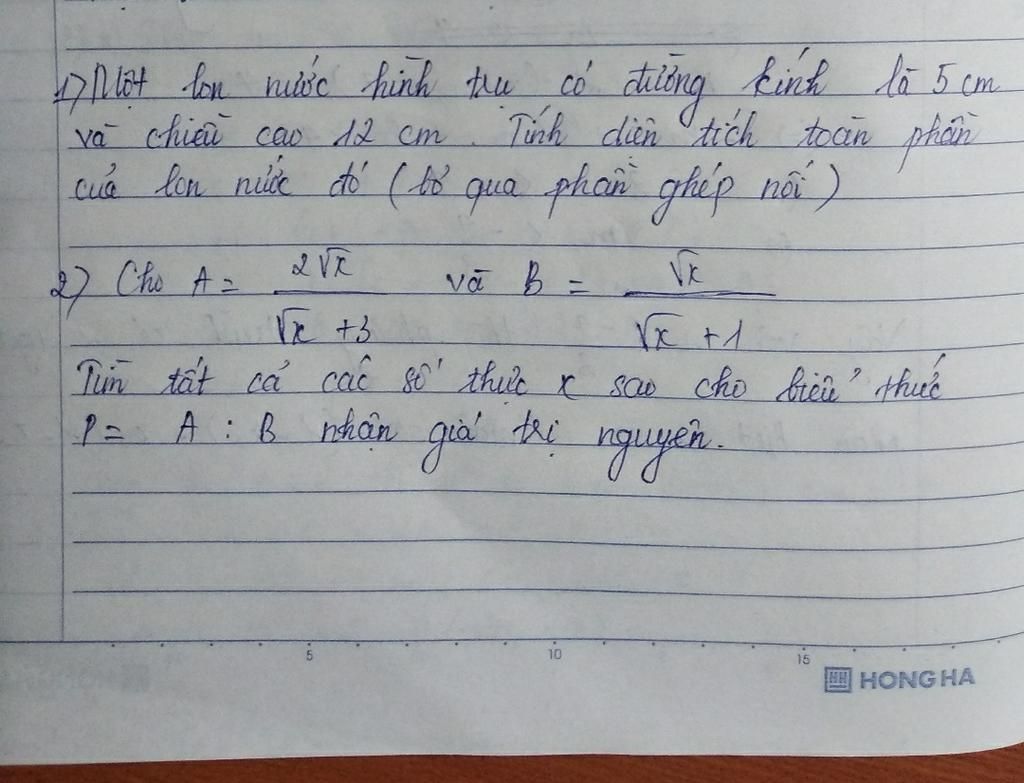 1) Một lon nước hình trụ có đường kính là 5 cm
và chiều cao 12 cm. Tính diện tích toàn phần
của lon nước đó (bỏ qua phần ghép nối)
2) Cho A = 2√x / (√x + 3) và B = √x / (√x + 1)
Tìm tất cả các số thực x sao cho biểu thức
P = A : B nhận giá trị nguyên.
5 10 15
HH HONG HA